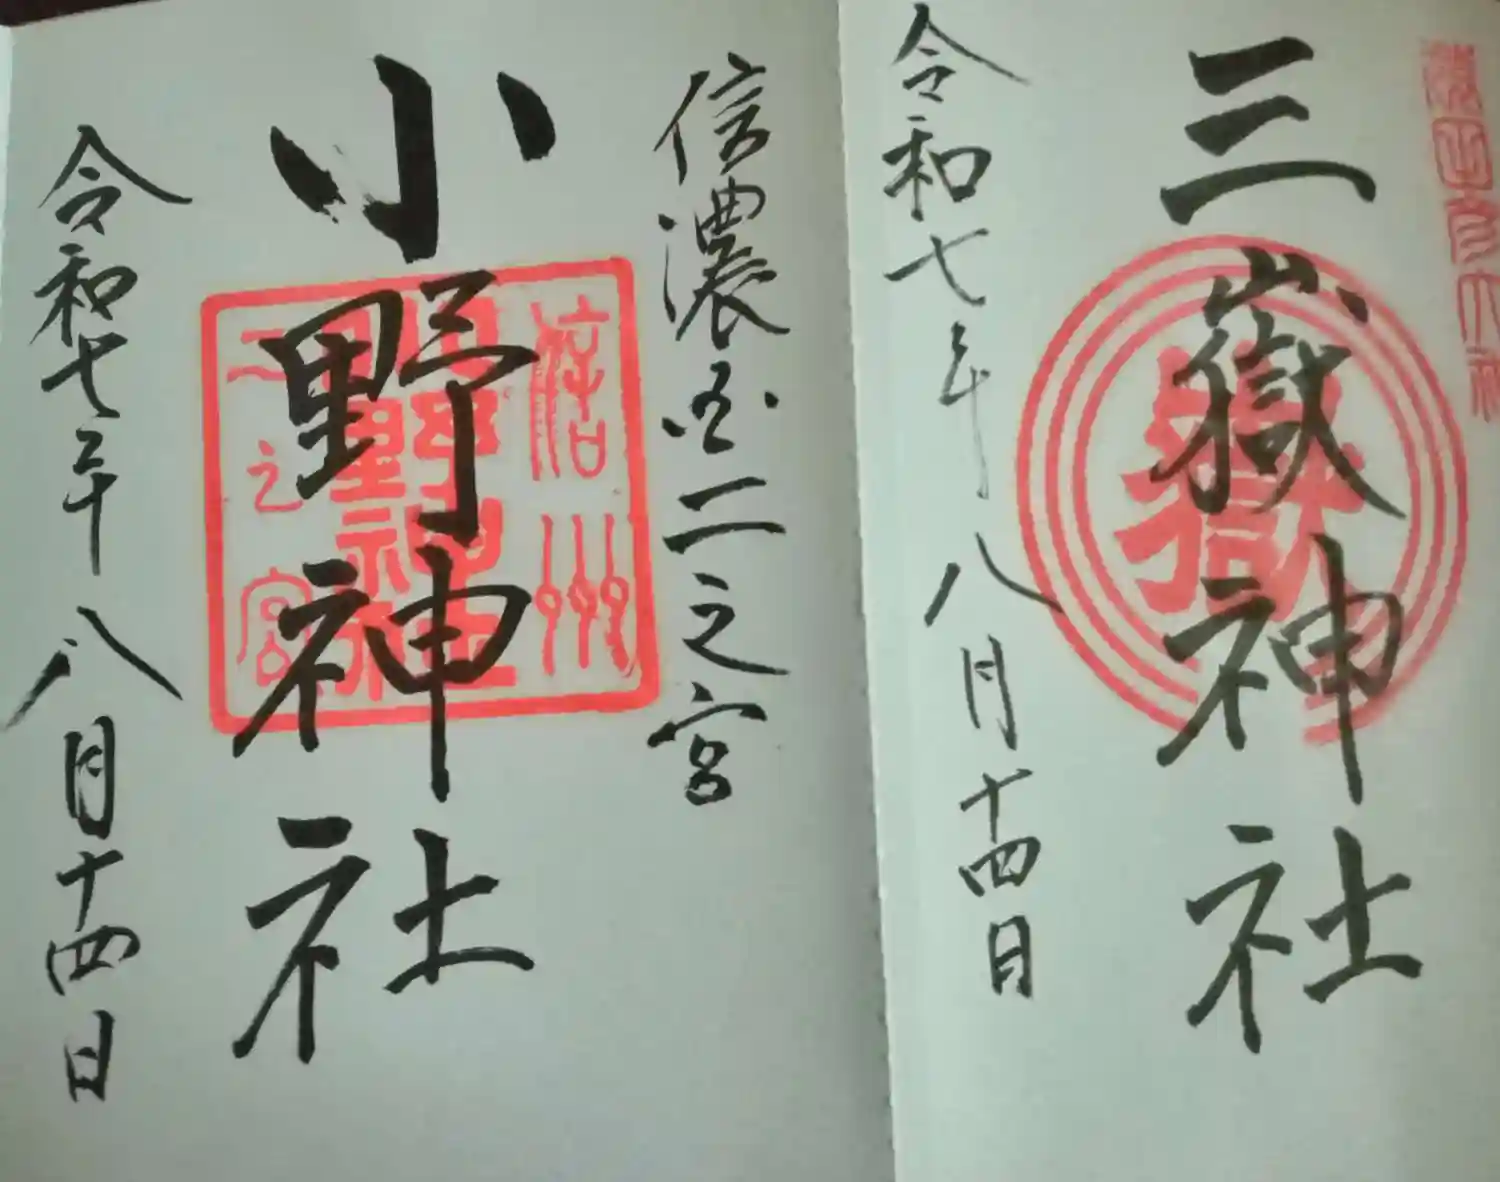 三嶽神社
令和七年八月十四日
嶽
信濃国二之宮
小野神社
令和七年八月十四日
信州
小野神社
二之宮